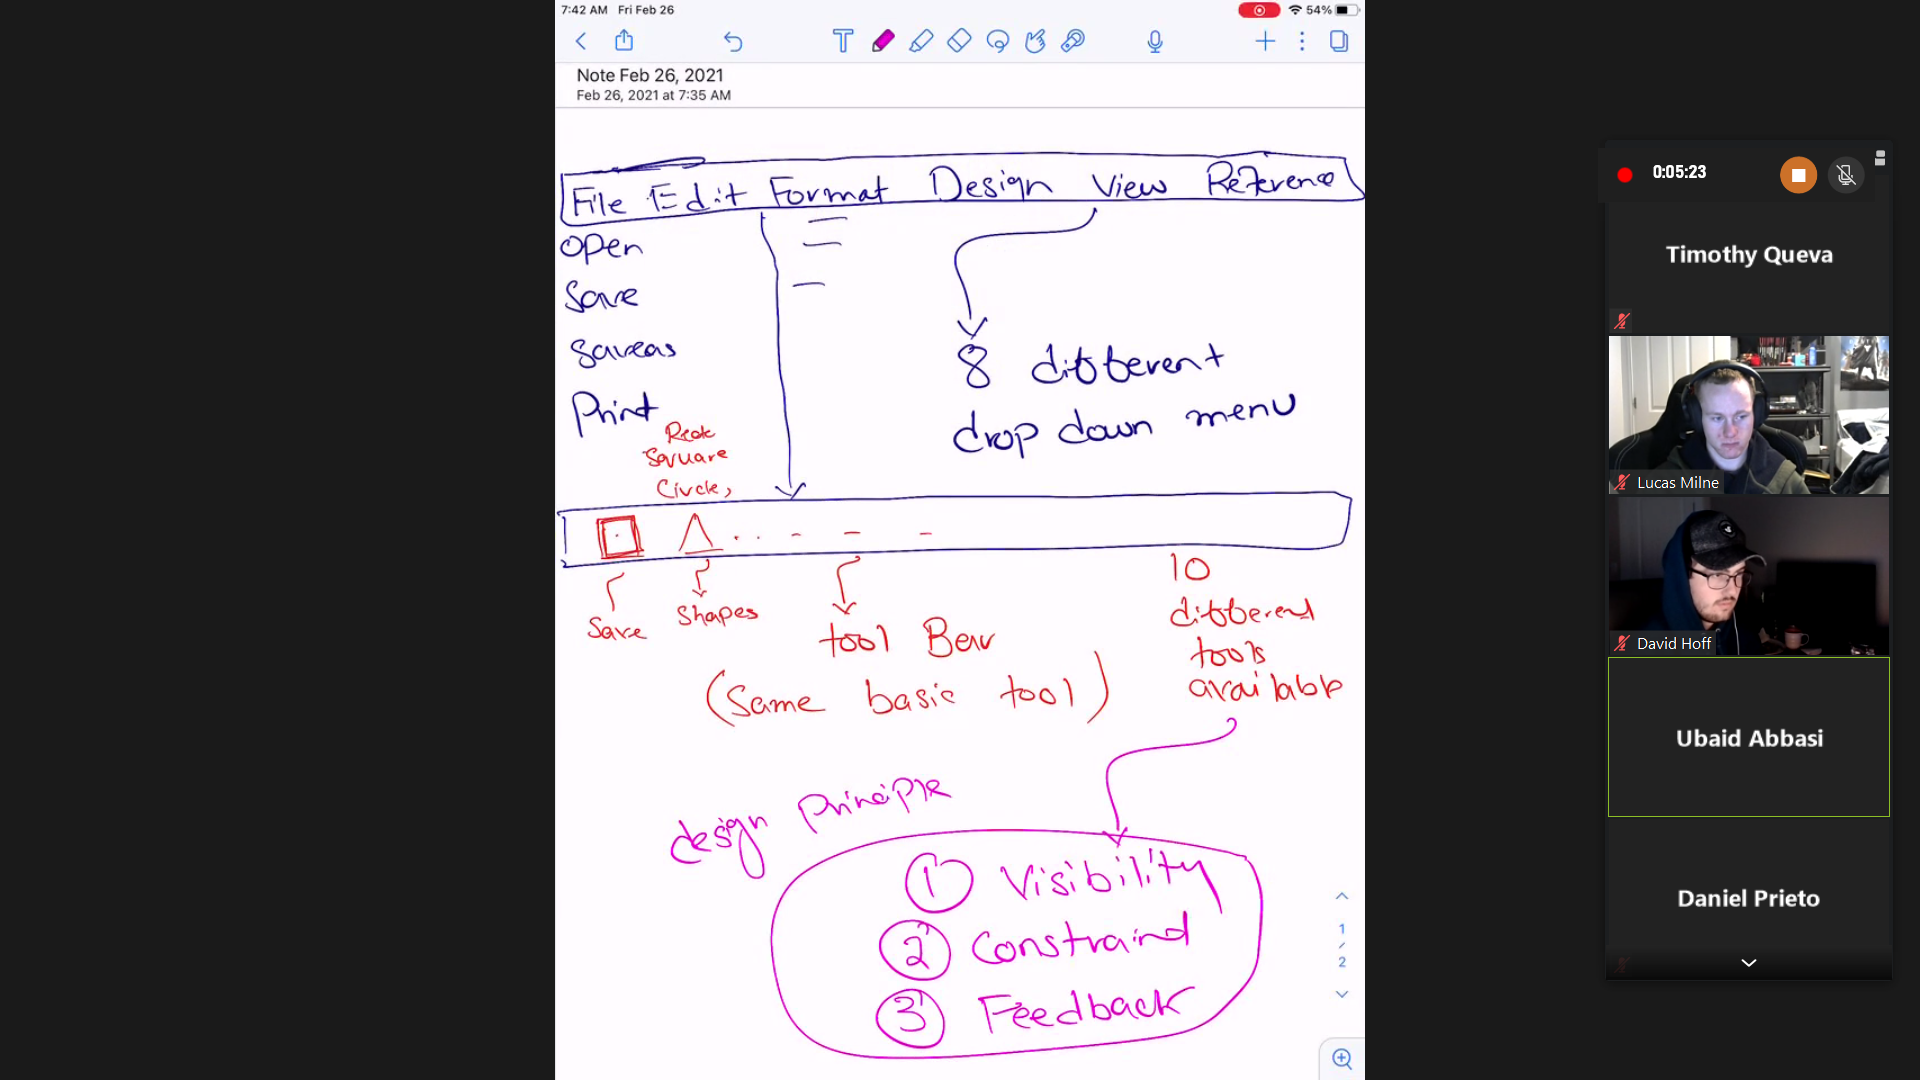 7:42 AM Fri Feb 26
54%
Note Feb 26, 2021
Feb 26, 2021 at 7:35 AM
File Edit Format Design View Reference
open
Save
saveas
Print
8 different
drop down menu
Square
Circle,
Save
Shapes
tool Bar
(Same basic tool)
10
different
tools
available
design Principle
1 Visibility
2 Constraind
3 Feedback
1
/
2
0:05:23
Timothy Queva
Lucas Milne
David Hoff
Ubaid Abbasi
Daniel Prieto